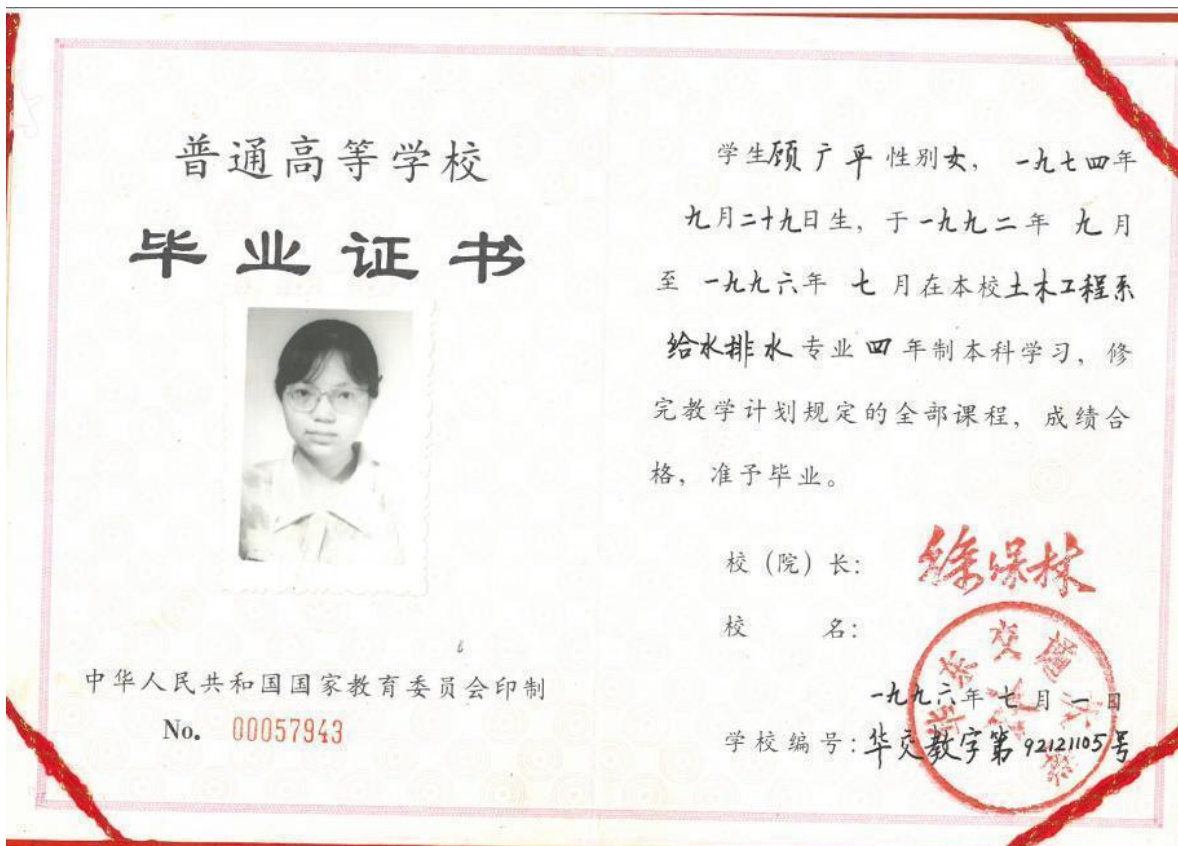 普通高等学校
毕业证书
中华人民共和国国家教育委员会印制
No. 00057943
学生顾广平性别女，一九七四年
九月二十九日生，于一九九二年 九月
至 一九九六年 七月在本校土木工程系
给水排水专业四年制本科学习，修
完教学计划规定的全部课程，成绩合
格，准予毕业。
校（院）长：
校 名：
华东交通大学
一九九六年七月一日
学校编号：华交教字第92121105号